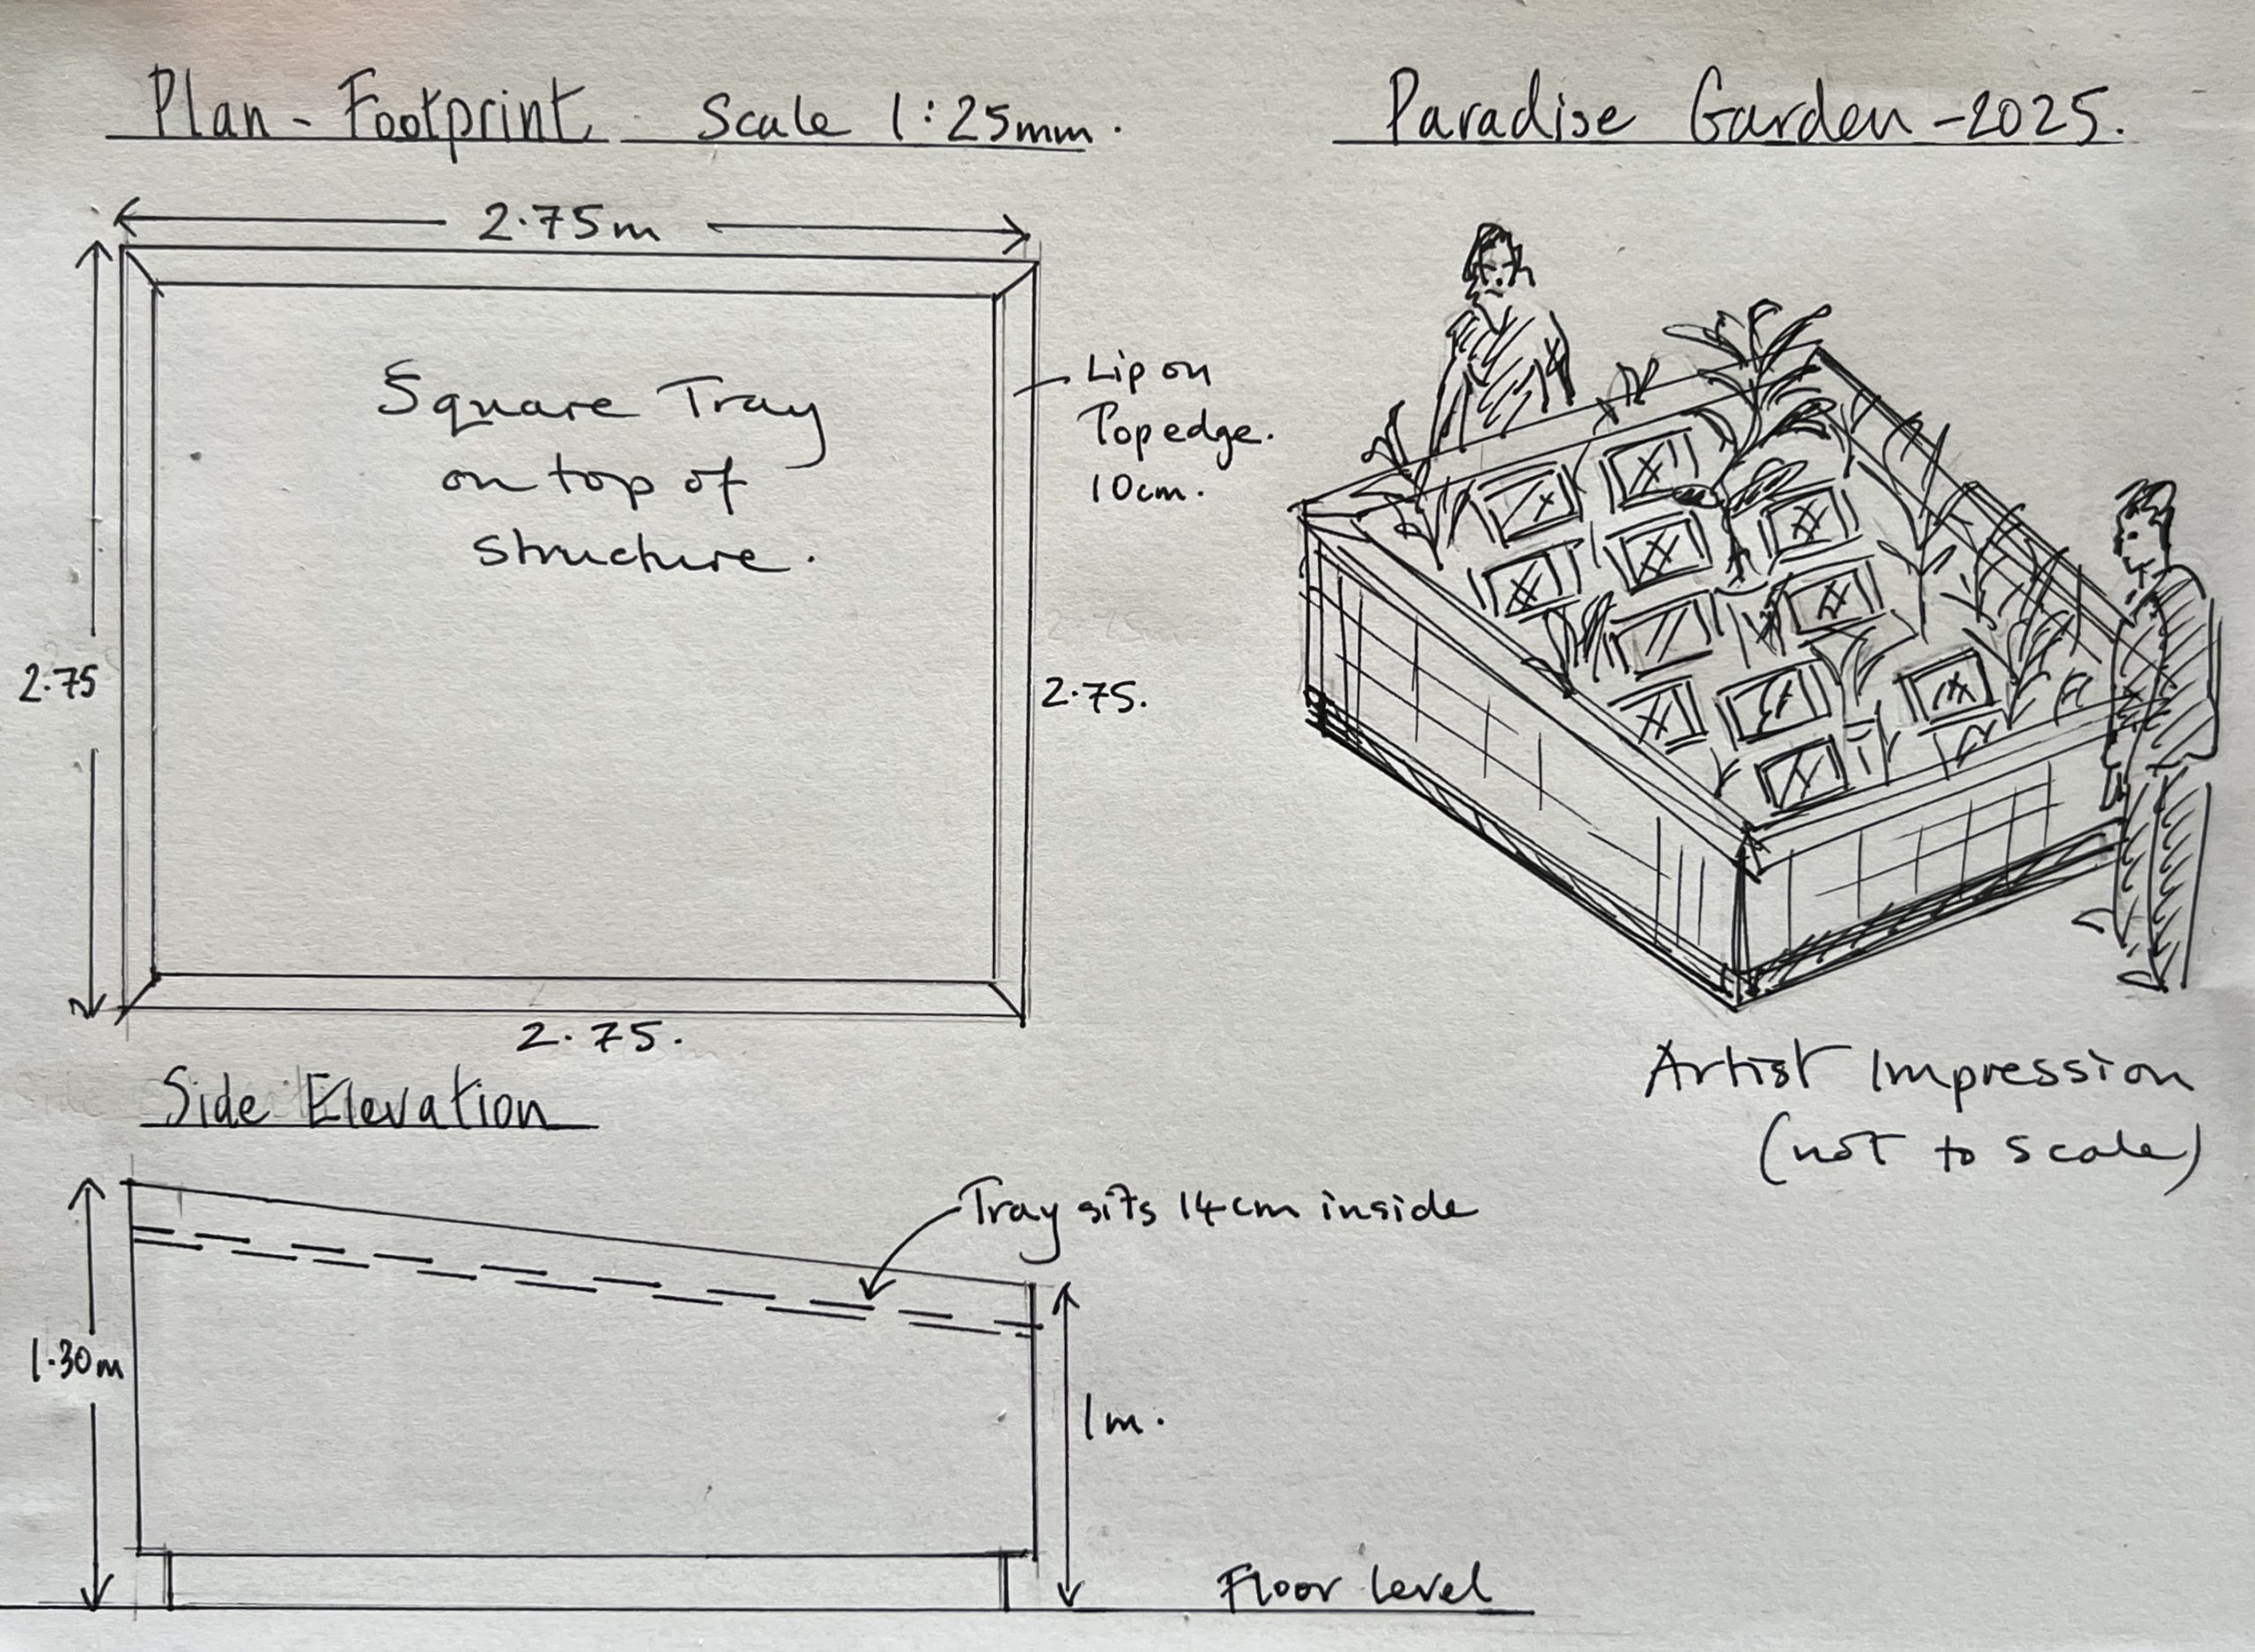 Plan - Footprint. Scale 1:25mm.
Paradise Garden - 2025.
2.75m
Square Tray
on top of
structure.
Lip on
Top edge.
10cm.
2.75
2.75.
2.75.
Side Elevation
Artist Impression
(not to scale)
Tray sits 14cm inside
1.30m
1m.
Floor level